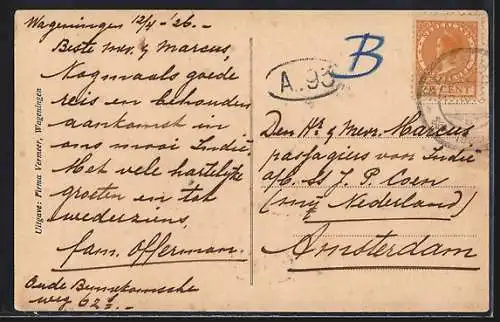 Wageningen 12/4 - '26. -
Beste mevr. & Marcus,
Nogmaals goede
reis en behouden
aankomst in
ons mooi Indië.
Met vele hartelijke
groeten en tot
wederziens,
fam. Offerman.
Oude Bennekomsche
weg 62 -
Uitgave: Firma Vermeer, Wageningen
A..93
B
CENT
Den Hr & Mevr. Marcus
passagiers voor Indië
a/b. ss J. P. Coen
(mij Nederland)
Amsterdam